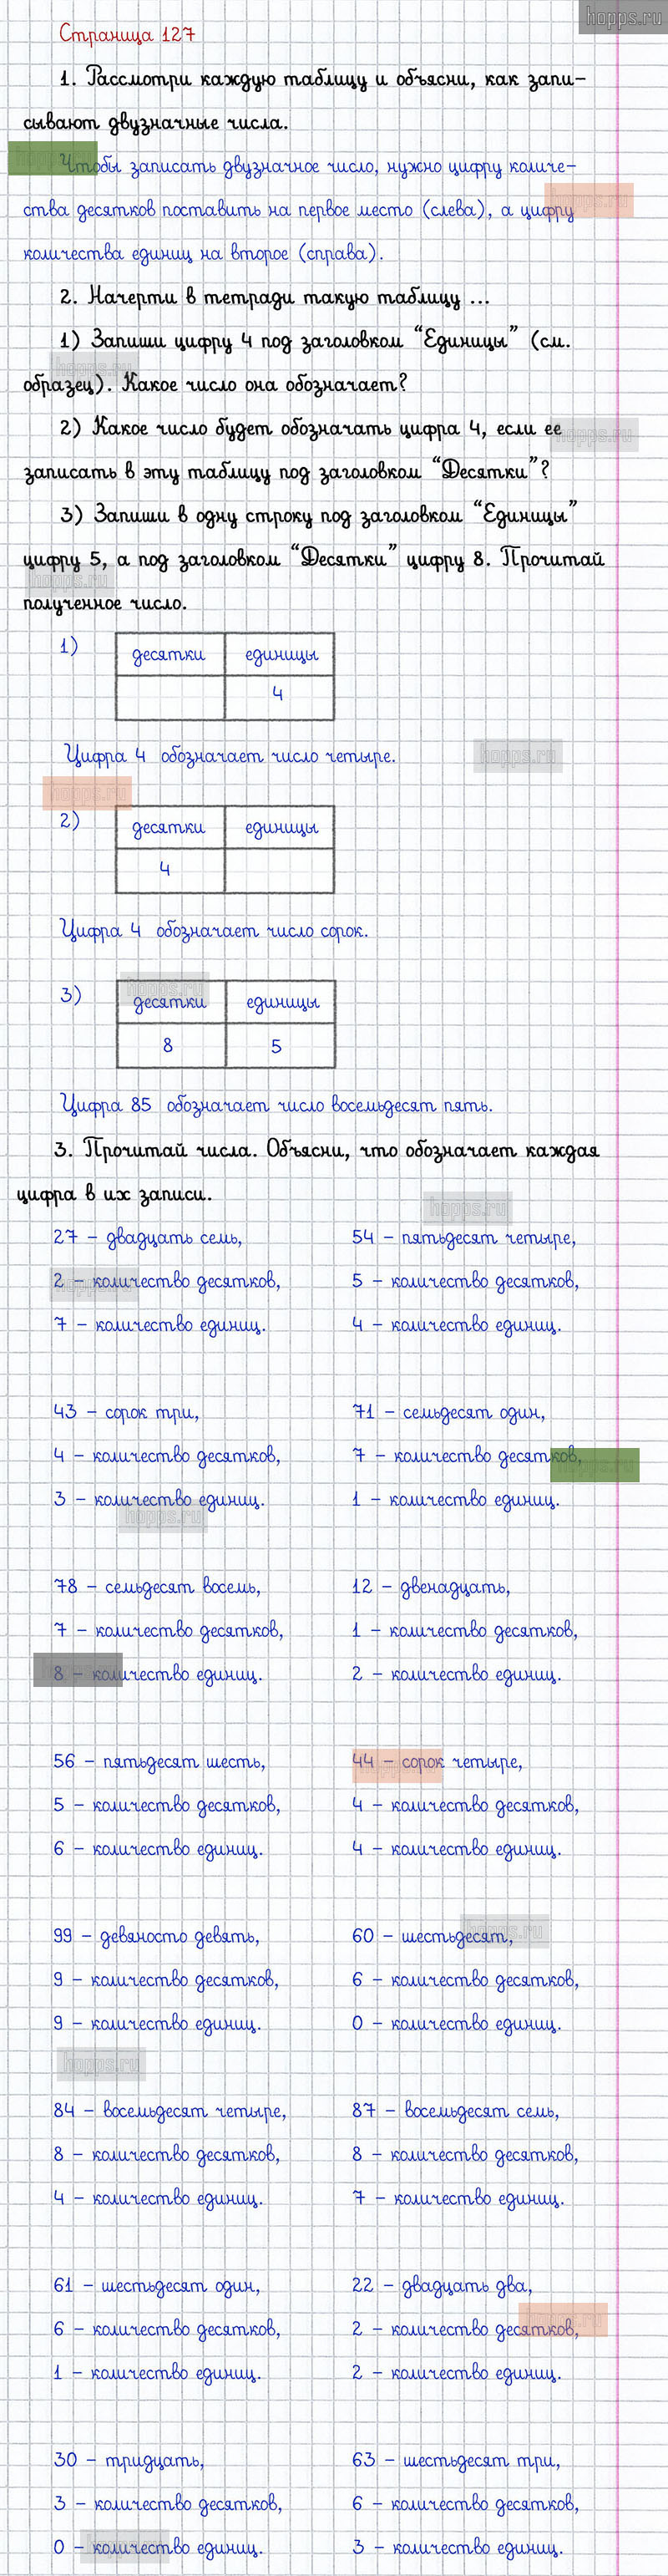 hopps.ru
Страница 127
1. Рассмотри каждую таблицу и объясни, как запи-
сывают двузначные числа.
Чтобы записать двузначное число, нужно цифру количе-
ства десятков поставить на первое место (слева), а цифру
количества единиц на второе (справа).
2. Начерти в тетради такую таблицу ...
1) Запиши цифру 4 под заголовком "Единицы" (см.
образец). Какое число она обозначает?
2) Какое число будет обозначать цифра 4, если ее
записать в эту таблицу под заголовком "Десятки"?
3) Запиши в одну строку под заголовком "Единицы"
цифру 5, а под заголовком "Десятки" цифру 8. Прочитай
полученное число.
1) десятки единицы
4
Цифра 4 обозначает число четыре.
2) десятки единицы
4
Цифра 4 обозначает число сорок.
3) десятки единицы
8 5
Цифра 85 обозначает число восемьдесят пять.
3. Прочитай числа. Объясни, что обозначает каждая
цифра в их записи.
27 – двадцать семь, 54 – пятьдесят четыре,
2 – количество десятков, 5 – количество десятков,
7 – количество единиц. 4 – количество единиц.
43 – сорок три, 71 – семьдесят один,
4 – количество десятков, 7 – количество десятков,
3 – количество единиц. 1 – количество единиц.
78 – семьдесят восемь, 12 – двенадцать,
7 – количество десятков, 1 – количество десятков,
8 – количество единиц. 2 – количество единиц.
56 – пятьдесят шесть, 44 – сорок четыре,
5 – количество десятков, 4 – количество десятков,
6 – количество единиц. 4 – количество единиц.
99 – девяносто девять, 60 – шестьдесят,
9 – количество десятков, 6 – количество десятков,
9 – количество единиц. 0 – количество единиц.
84 – восемьдесят четыре, 87 – восемьдесят семь,
8 – количество десятков, 8 – количество десятков,
4 – количество единиц. 7 – количество единиц.
61 – шестьдесят один, 22 – двадцать два,
6 – количество десятков, 2 – количество десятков,
1 – количество единиц. 2 – количество единиц.
30 – тридцать, 63 – шестьдесят три,
3 – количество десятков, 6 – количество десятков,
0 – количество единиц. 3 – количество единиц.